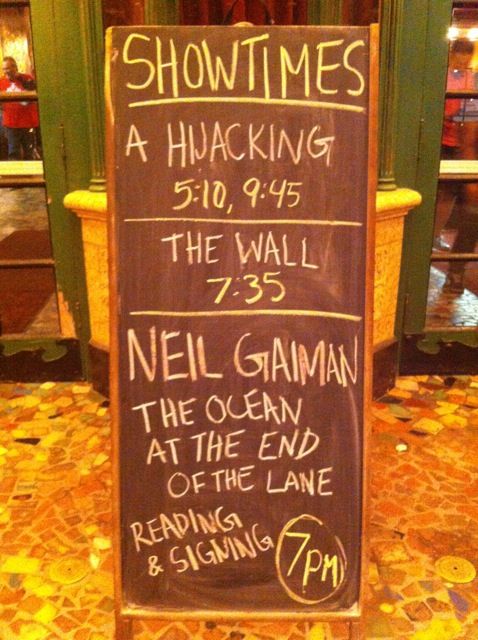 SHOWTIMES
A HIJACKING
5:10, 9:45
THE WALL
7:35
NEIL GAIMAN
THE OCEAN
AT THE END
OF THE LANE
READING
& SIGNING
7PM